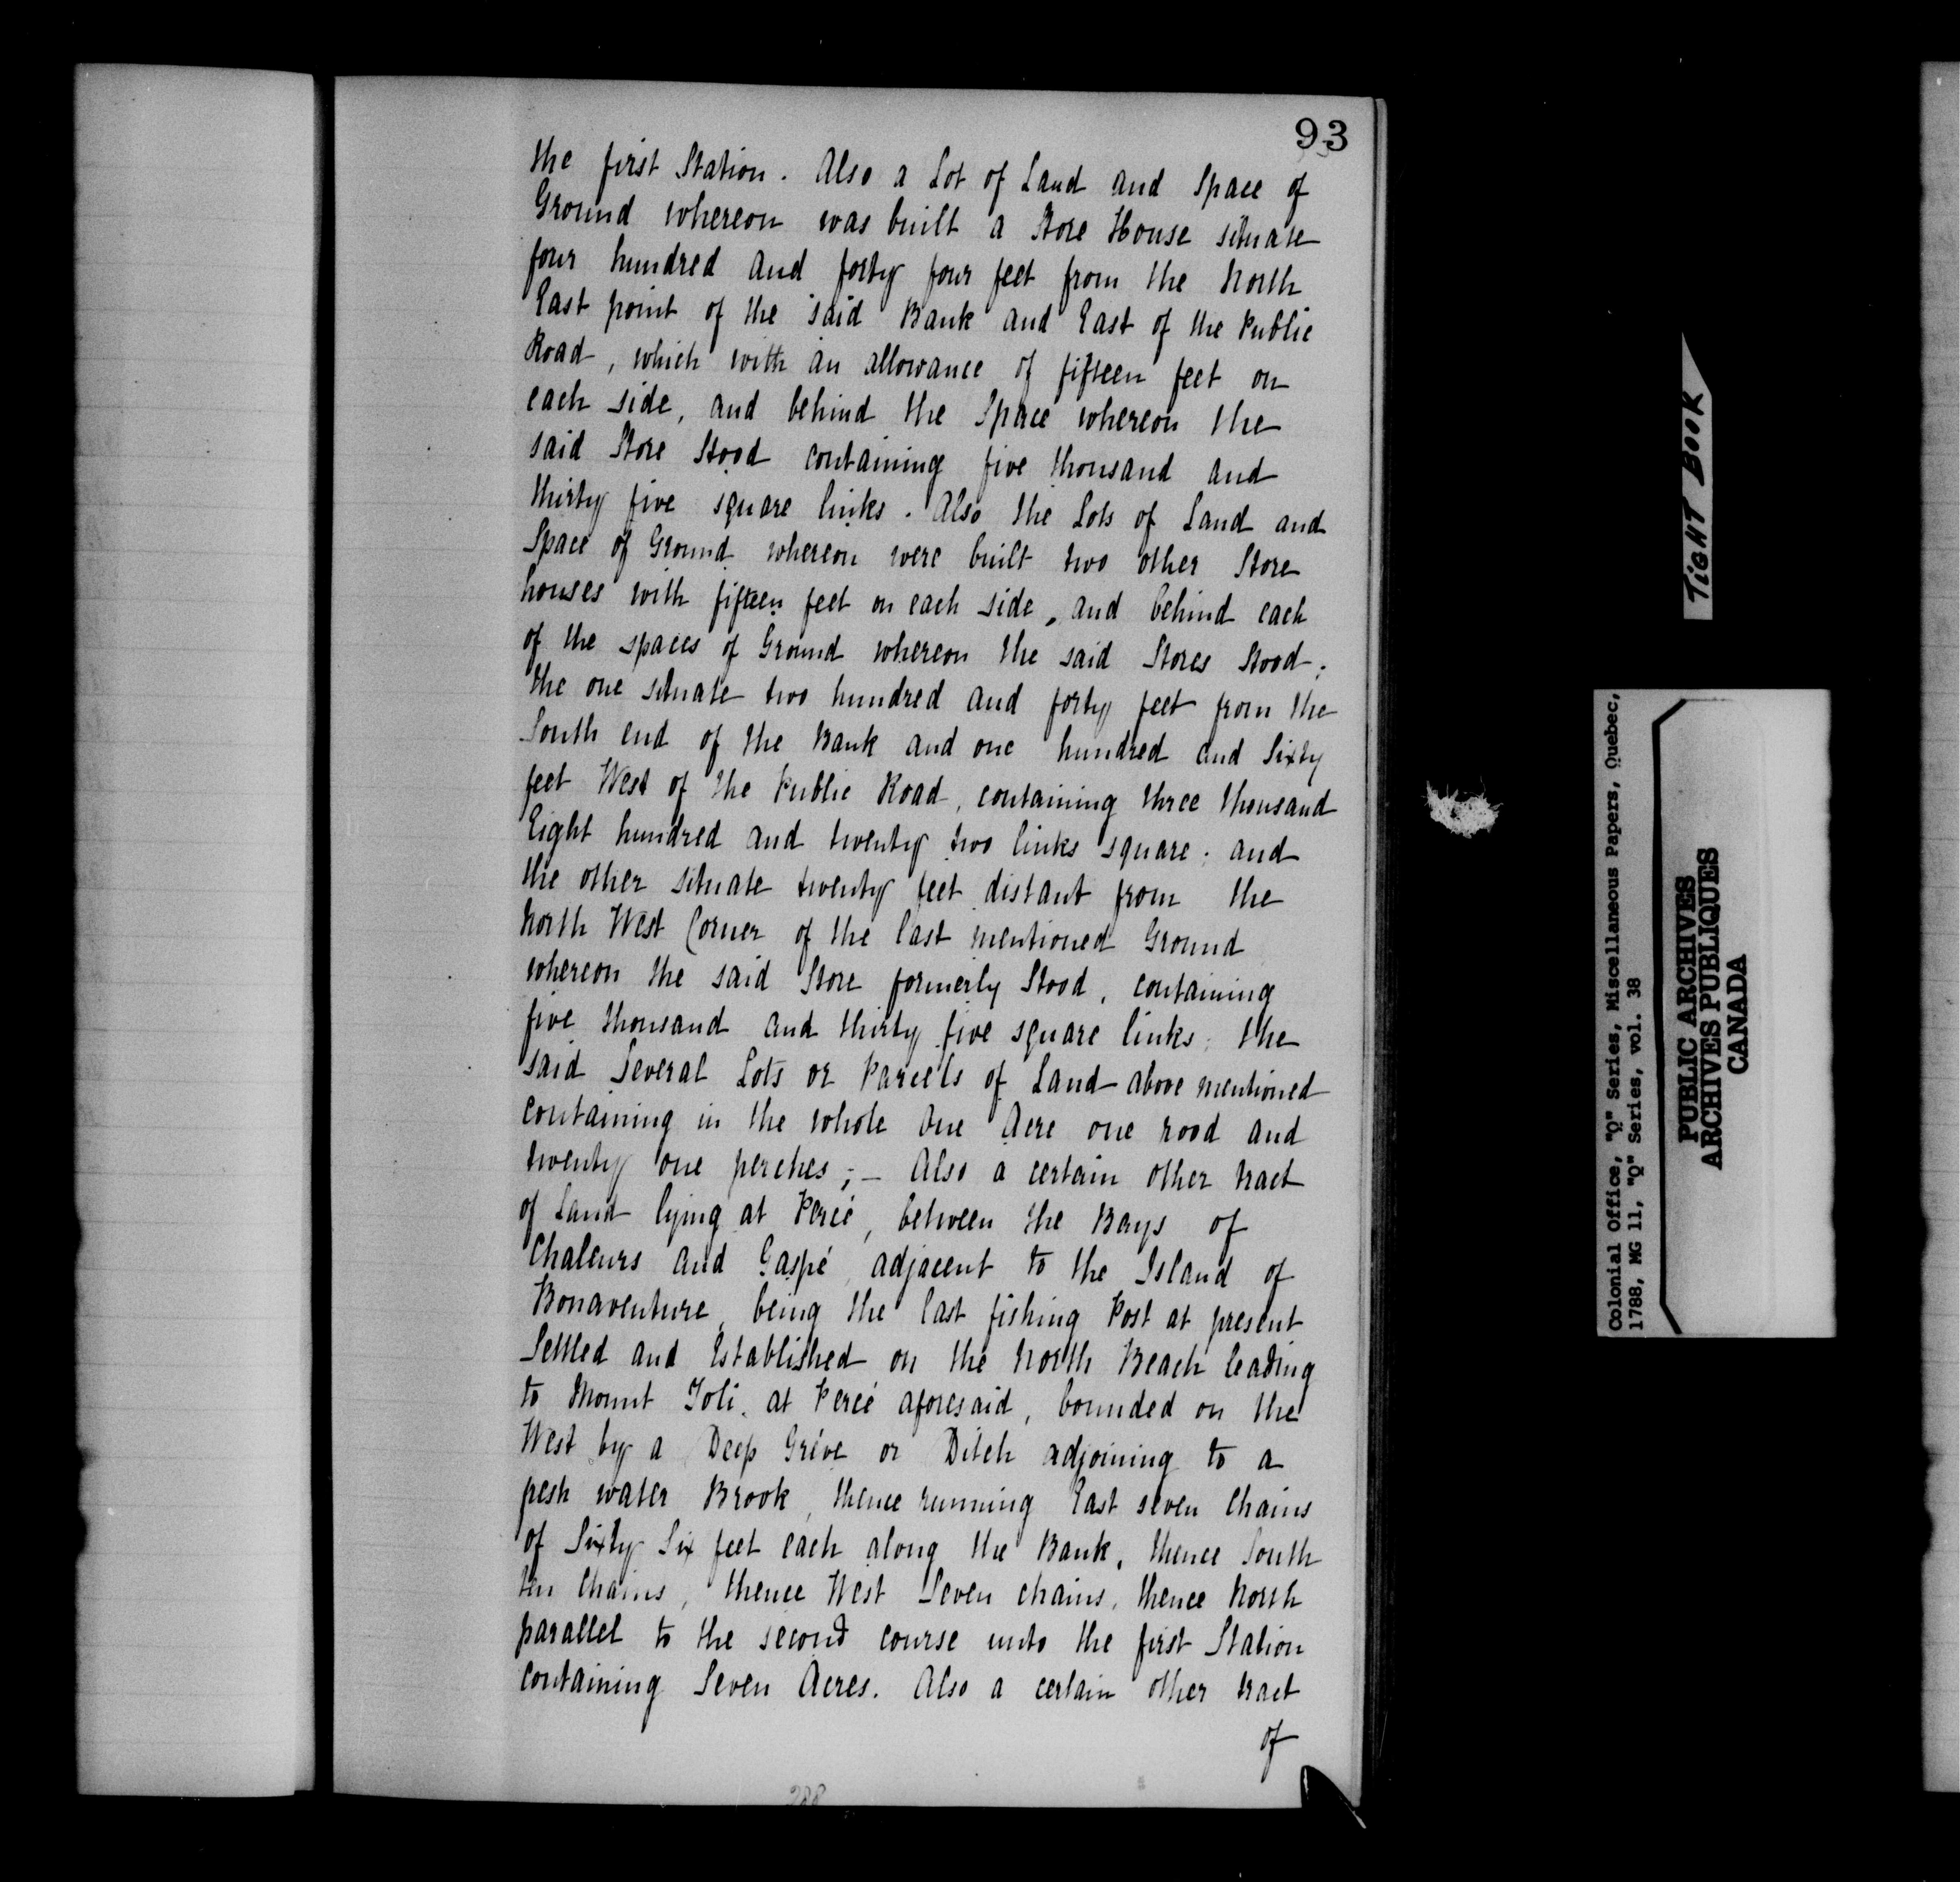 93
the first Station. Also a Lot of Land and Space of
Ground whereon was built a Store House situate
four hundred and forty four feet from the North
East point of the said Bank and East of the Public
Road, which with an allowance of fifteen feet on
each side, and behind the Space whereon the
said Store Stood containing five thousand and
thirty five square links. Also the Lots of Land and
Space of Ground whereon were built two other Store
houses with fifteen feet on each side, and behind each
of the spaces of Ground whereon the said Stores Stood;
the one situate two hundred and forty feet from the
South end of the Bank and one hundred and Sixty
feet West of the Public Road, containing three thousand
Eight hundred and twenty two links square; and
the other situate twenty feet distant from the
North West Corner of the last mentioned Ground
whereon the said Store formerly Stood, containing
five thousand and thirty five square links; the
said Several Lots or Parcels of Land above mentioned
containing in the whole One Acre one rood and
twenty one perches; — Also a certain other tract
of Land lying at Percé, between the Bays of
Chaleurs and Gaspé, adjacent to the Island of
Bonaventure, being the last fishing Post at present
Settled and Established on the North Beach leading
to Mount Joli, at Percé aforesaid, bounded on the
West by a Deep Grève or Ditch adjoining to a
fresh water Brook, thence running East seven Chains
of Sixty Six feet each along the Bank, thence South
ten Chains, thence West Seven chains, thence North
parallel to the second course unto the first Station
containing Seven Acres. Also a certain other tract
of
288
TIGHT BOOK
Colonial Office, "Q" Series, Miscellaneous Papers, Quebec,
1788, MG 11, "Q" Series, vol. 38
PUBLIC ARCHIVES
ARCHIVES PUBLIQUES
CANADA